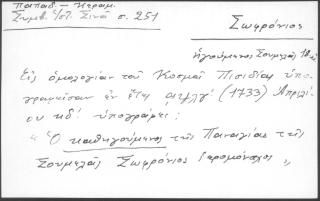 Παπαδ. - Κεραμ.
Συμβ. Ἱστ. Σινᾶ σ. 251
Σωφρόνιος
ἡγούμενος Σουμελᾶ
Εἰς ὁμολογίαν τοῦ Κοσμᾶ Πισιδίας ὑπο-
γραφεῖσαν ἐν ἔτει αψλγʹ (1733) Ἀπριλί-
ου κδʹ. ὑπογράφει:
"Ὁ καθηγούμενος τῆς Παναγίας τῆς
Σουμελᾶς Σωφρόνιος ἱερομόναχος"